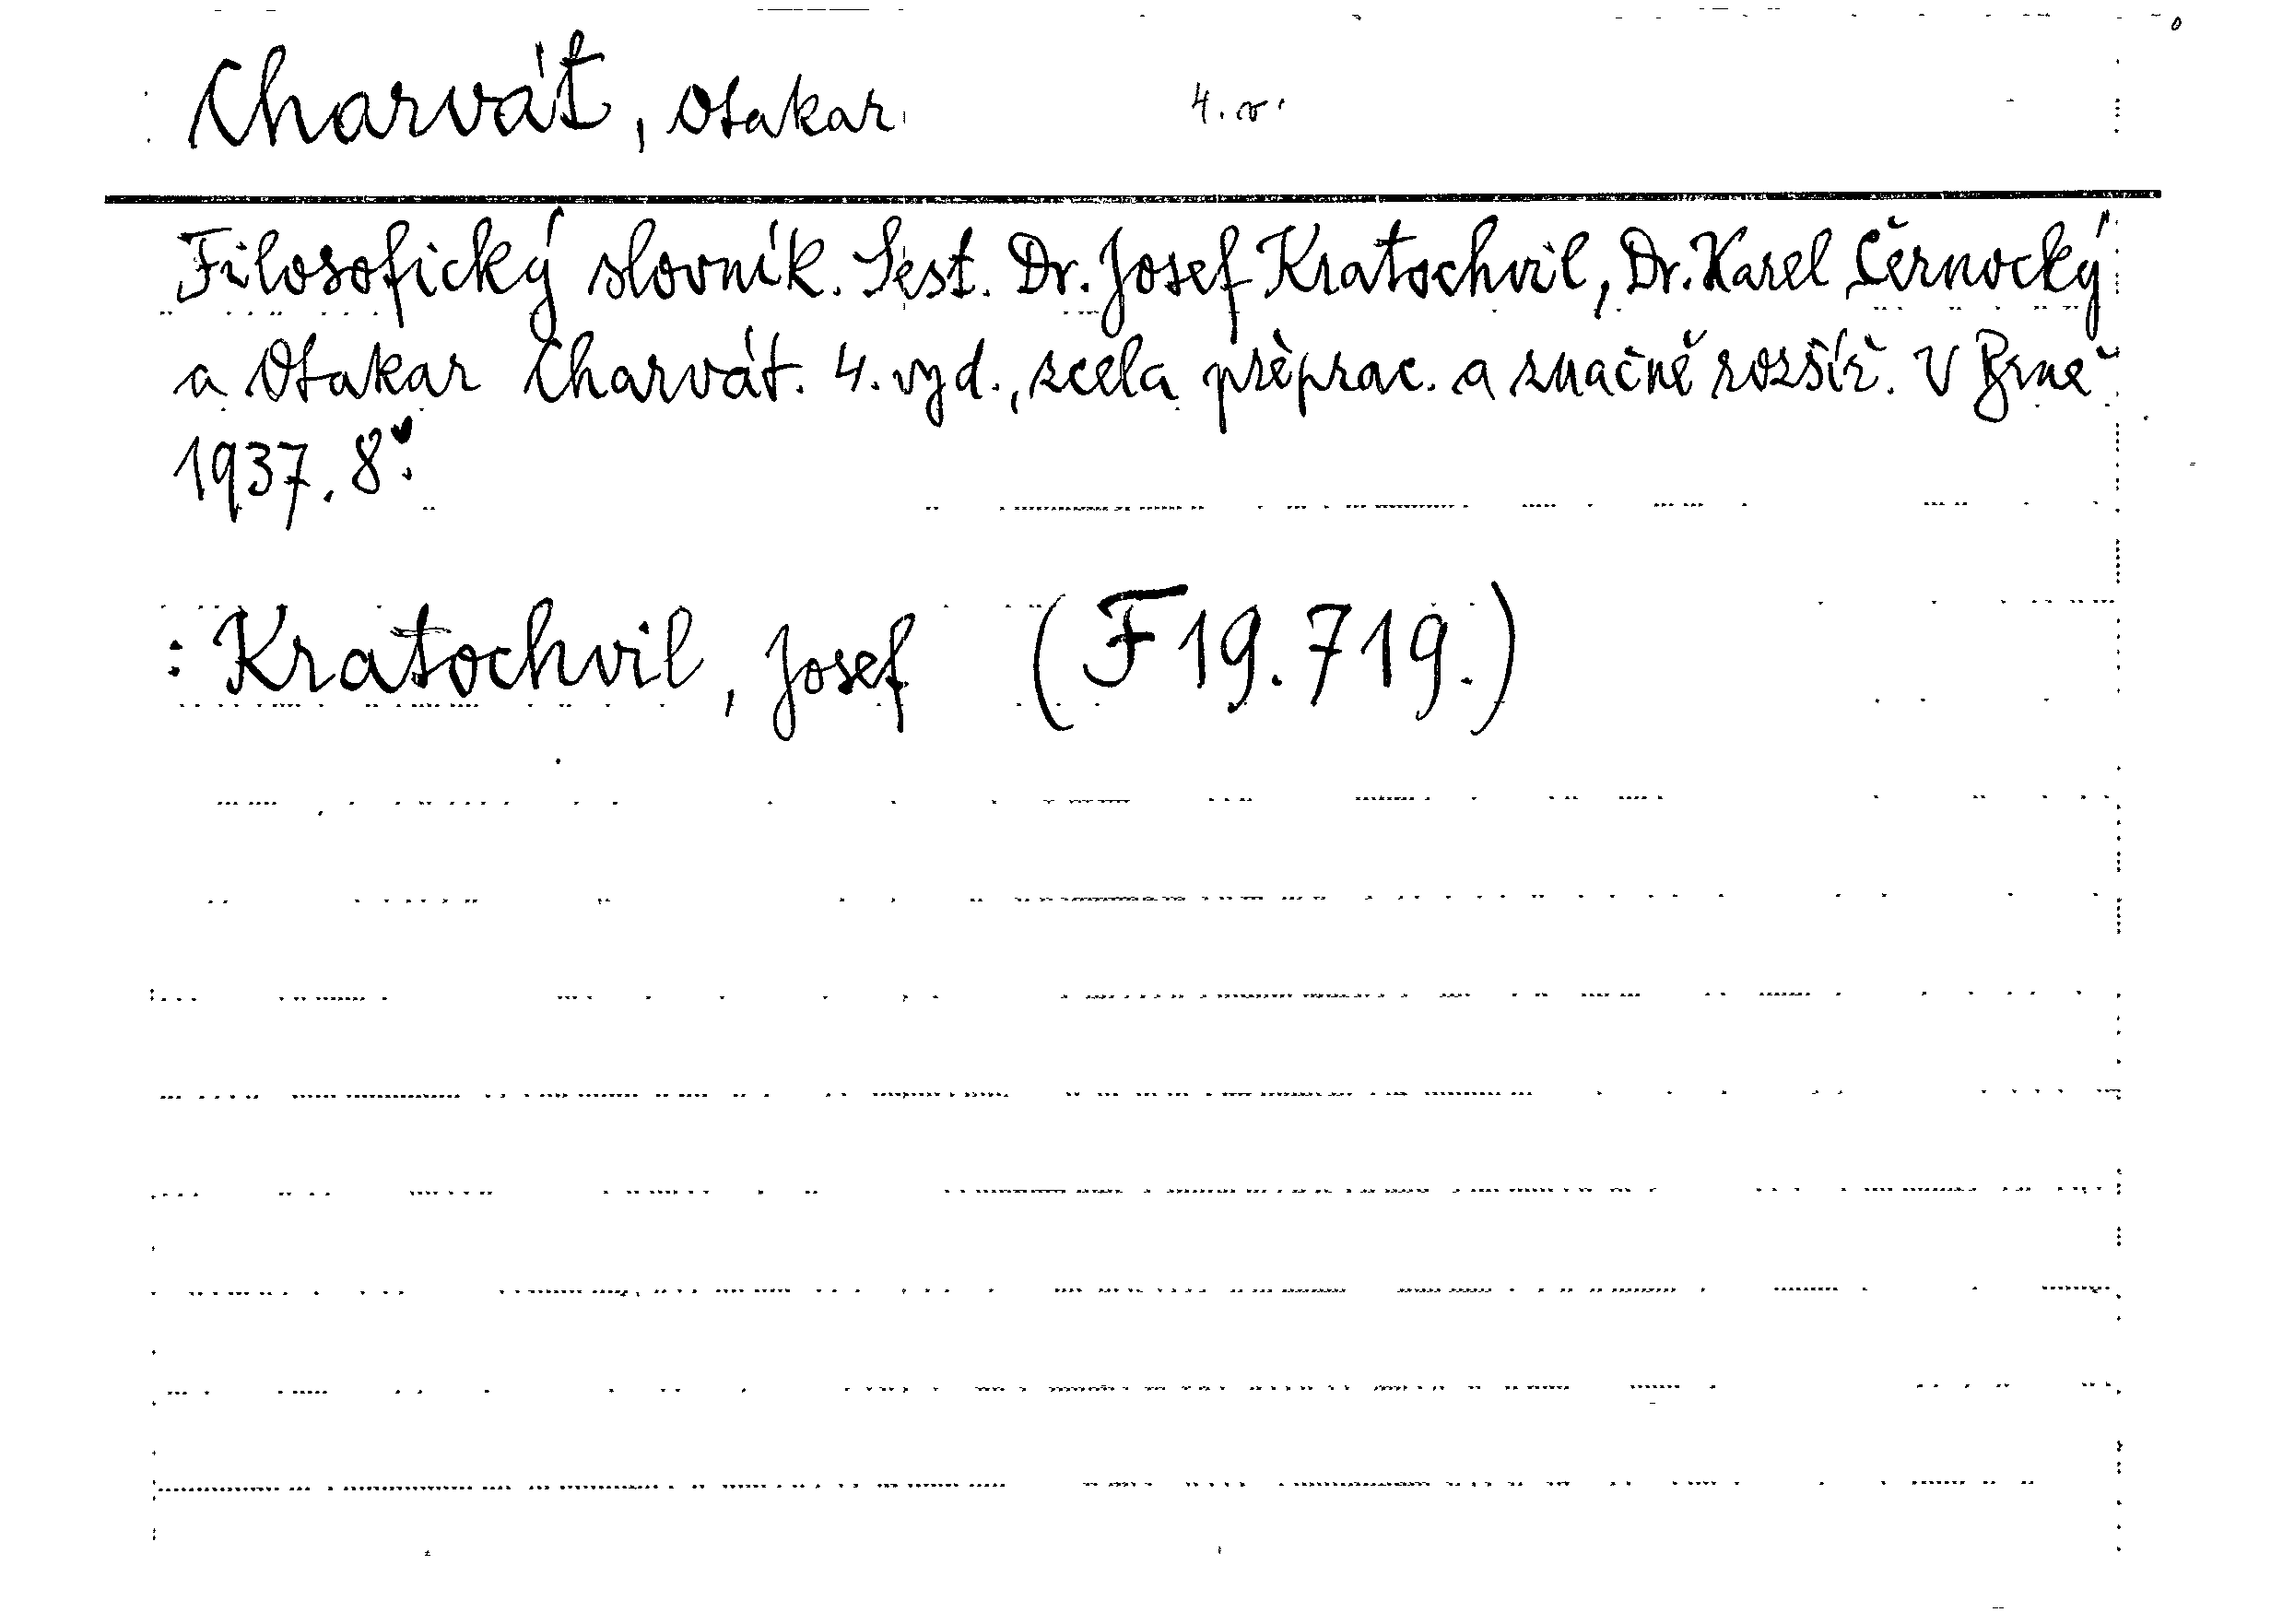 Charvát, Otakar 4. v.
Filosofický slovník. Sest. Dr. Josef Kratochvil, Dr. Karel Černocký
a Otakar Charvát. 4. vyd., zcela přeprac. a značně rozšíř. V Brně
1937. 8°.
: Kratochvil, Josef (F 19.719.)